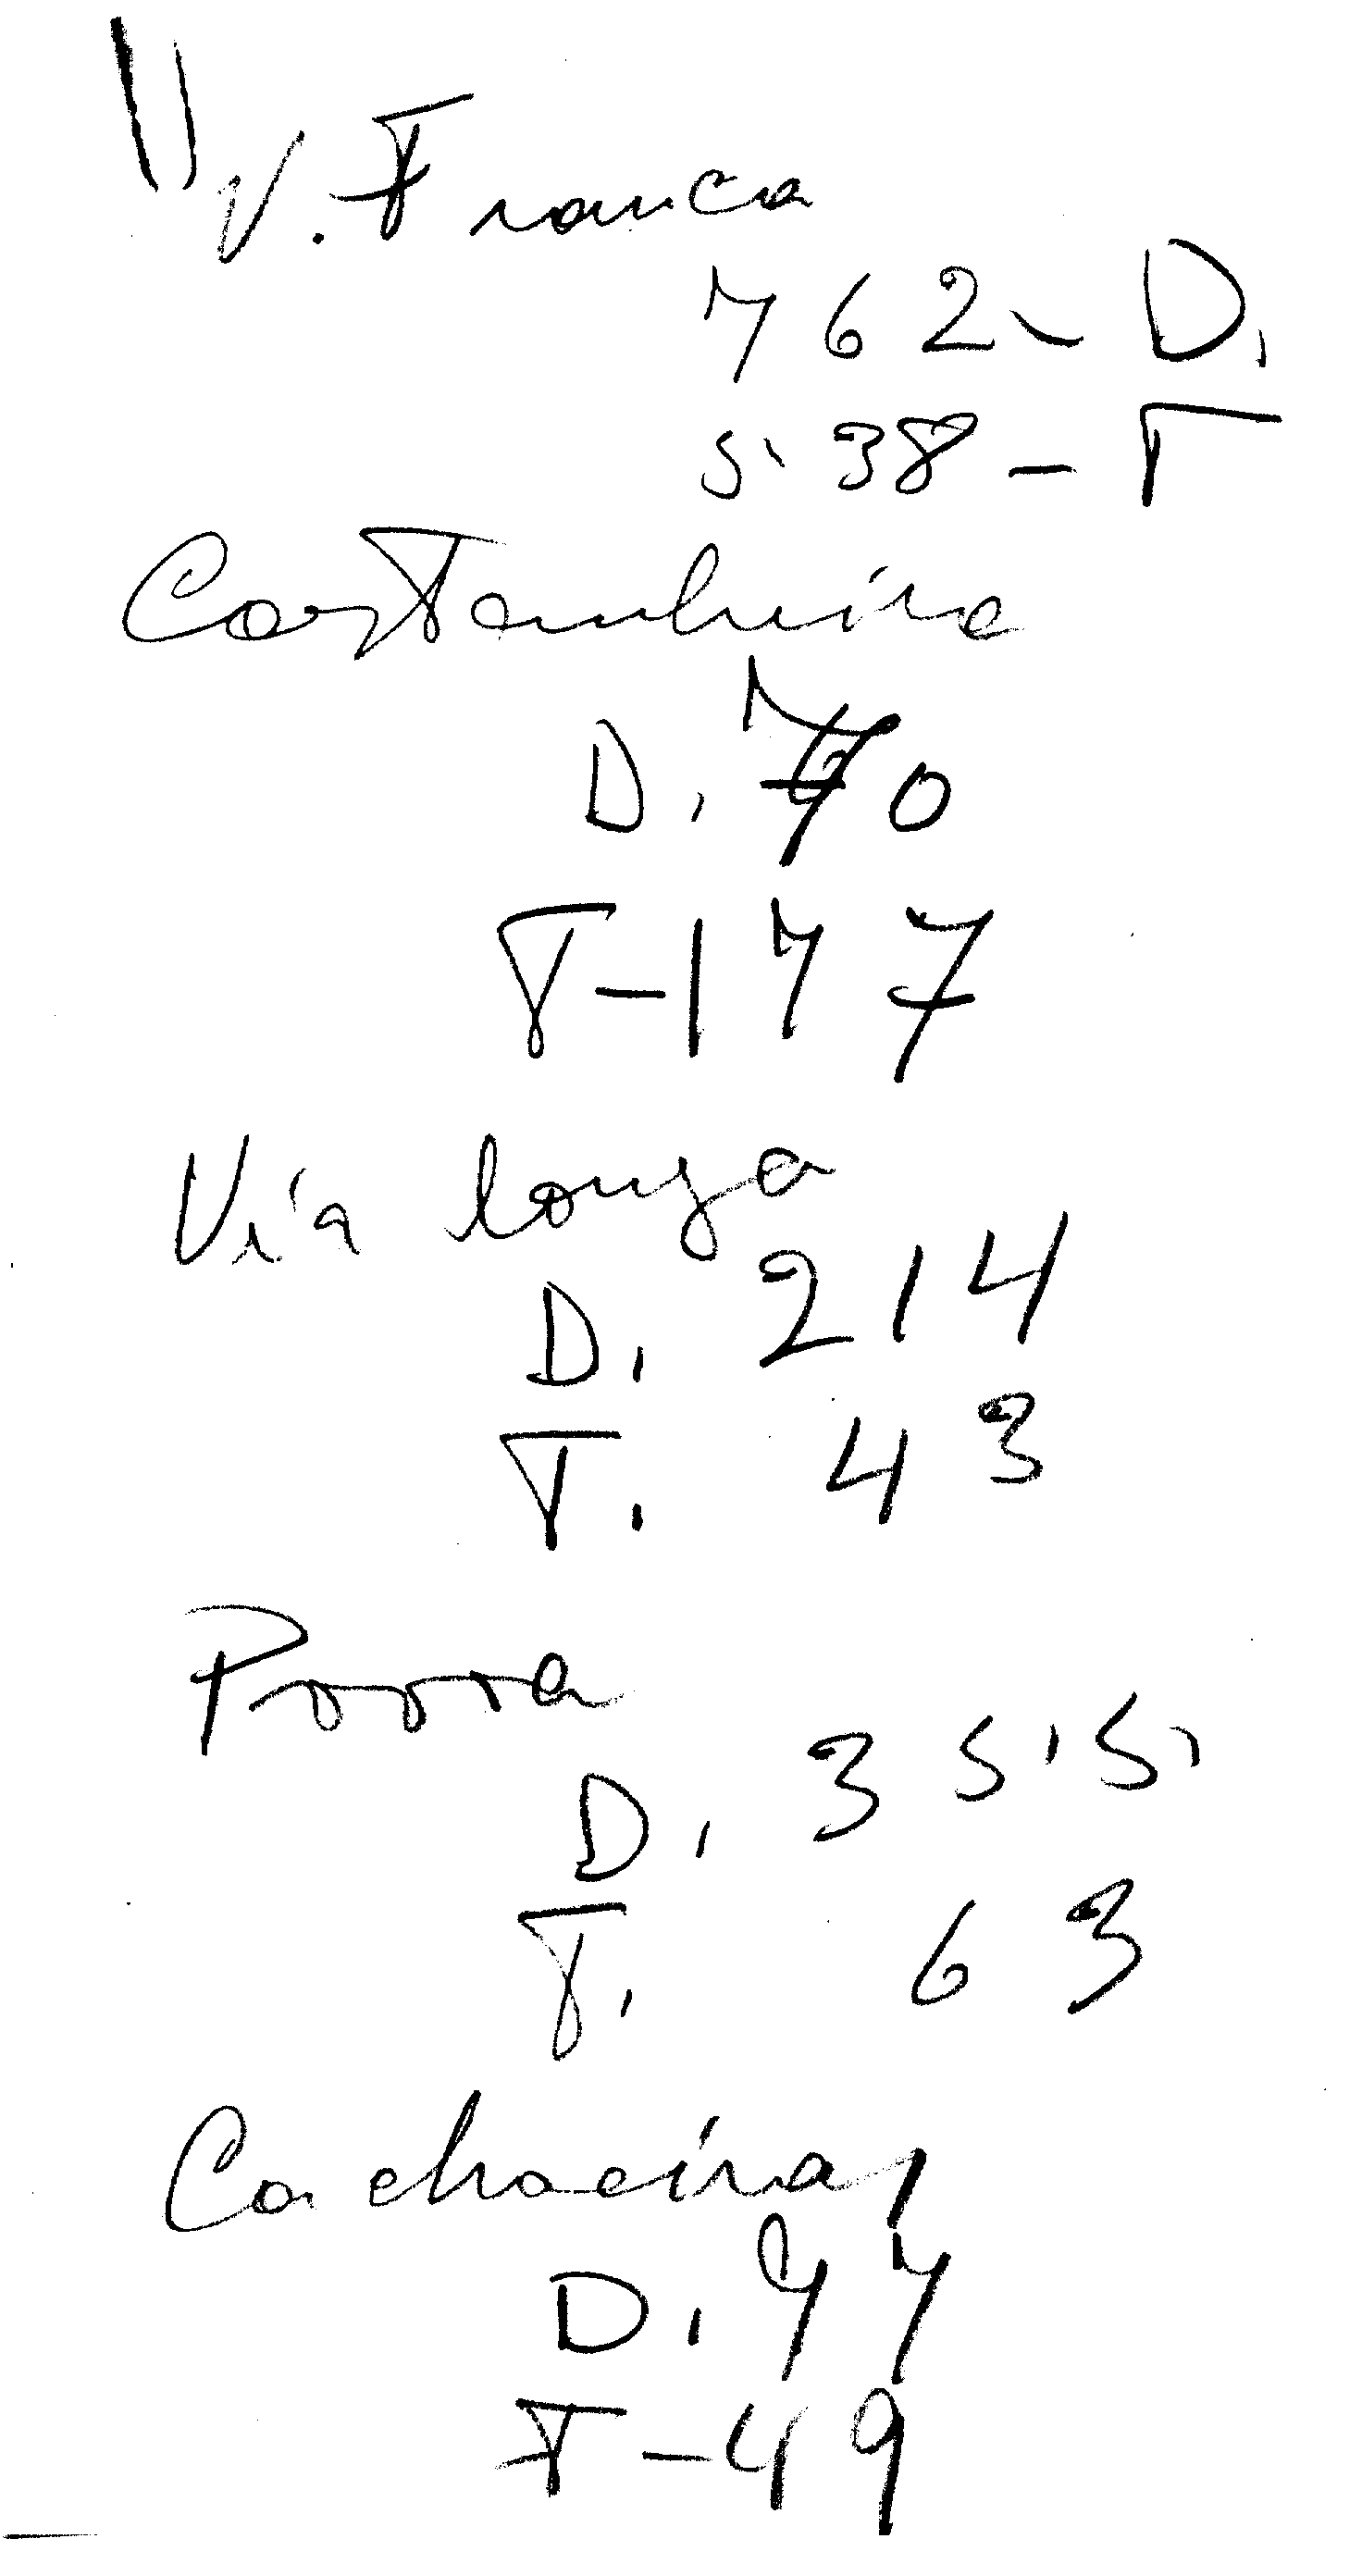 V. Franca
762 - D.
538 - T
Castanheira
D. 70
T - 177
Via longa
D. 214
T. 43
Povoa
D. 355
T. 63
Cachoeiras
D. 77
T - 49